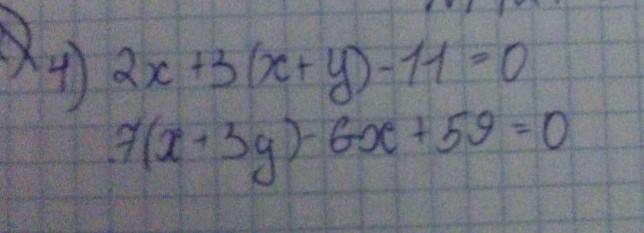 4) 2x+3(x+y)-11=0
7(x-3y)-6x+59=0